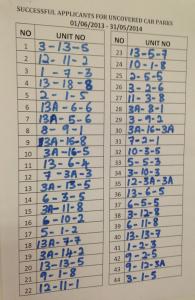 SUCCESSFUL APPLICANTS FOR UNCOVERED CAR PARKS
01/06/2013 - 31/05/2014
NO UNIT NO
1 3-13-5
2 12-11-2
3 1-7-3
4 13-18-8
5 2-1-5
6 13A-6-6
7 13A-5-6
8 8-9-1
9 13A-16-8
10 3A-16-5
11 13-6-4
12 7-3A-3
13 3A-13-5
14 6-3-5
15 3A-1-8
16 6-10-2
17 5-1-2
18 13A-7-7
19 3A-14-2
20 13-13-5
21 9-1-8
22 12-11-1
NO UNIT NO
23 13-5-7
24 10-1-8
25 2-5-5
26 3-2-6
27 11-3-8
28 3A-8-1
29 3-9-2
30 3A-16-3A
31 7-2-1
32 10-3-5
33 5-5-3
34 3-10-3
35 12-3A-3A
36 13-6-5
37 6-5-5
38 3-12-8
39 6-11-8
40 13-13-7
41 1-2-3
42 9-2-5
43 9-12-3A
44 3-1-5